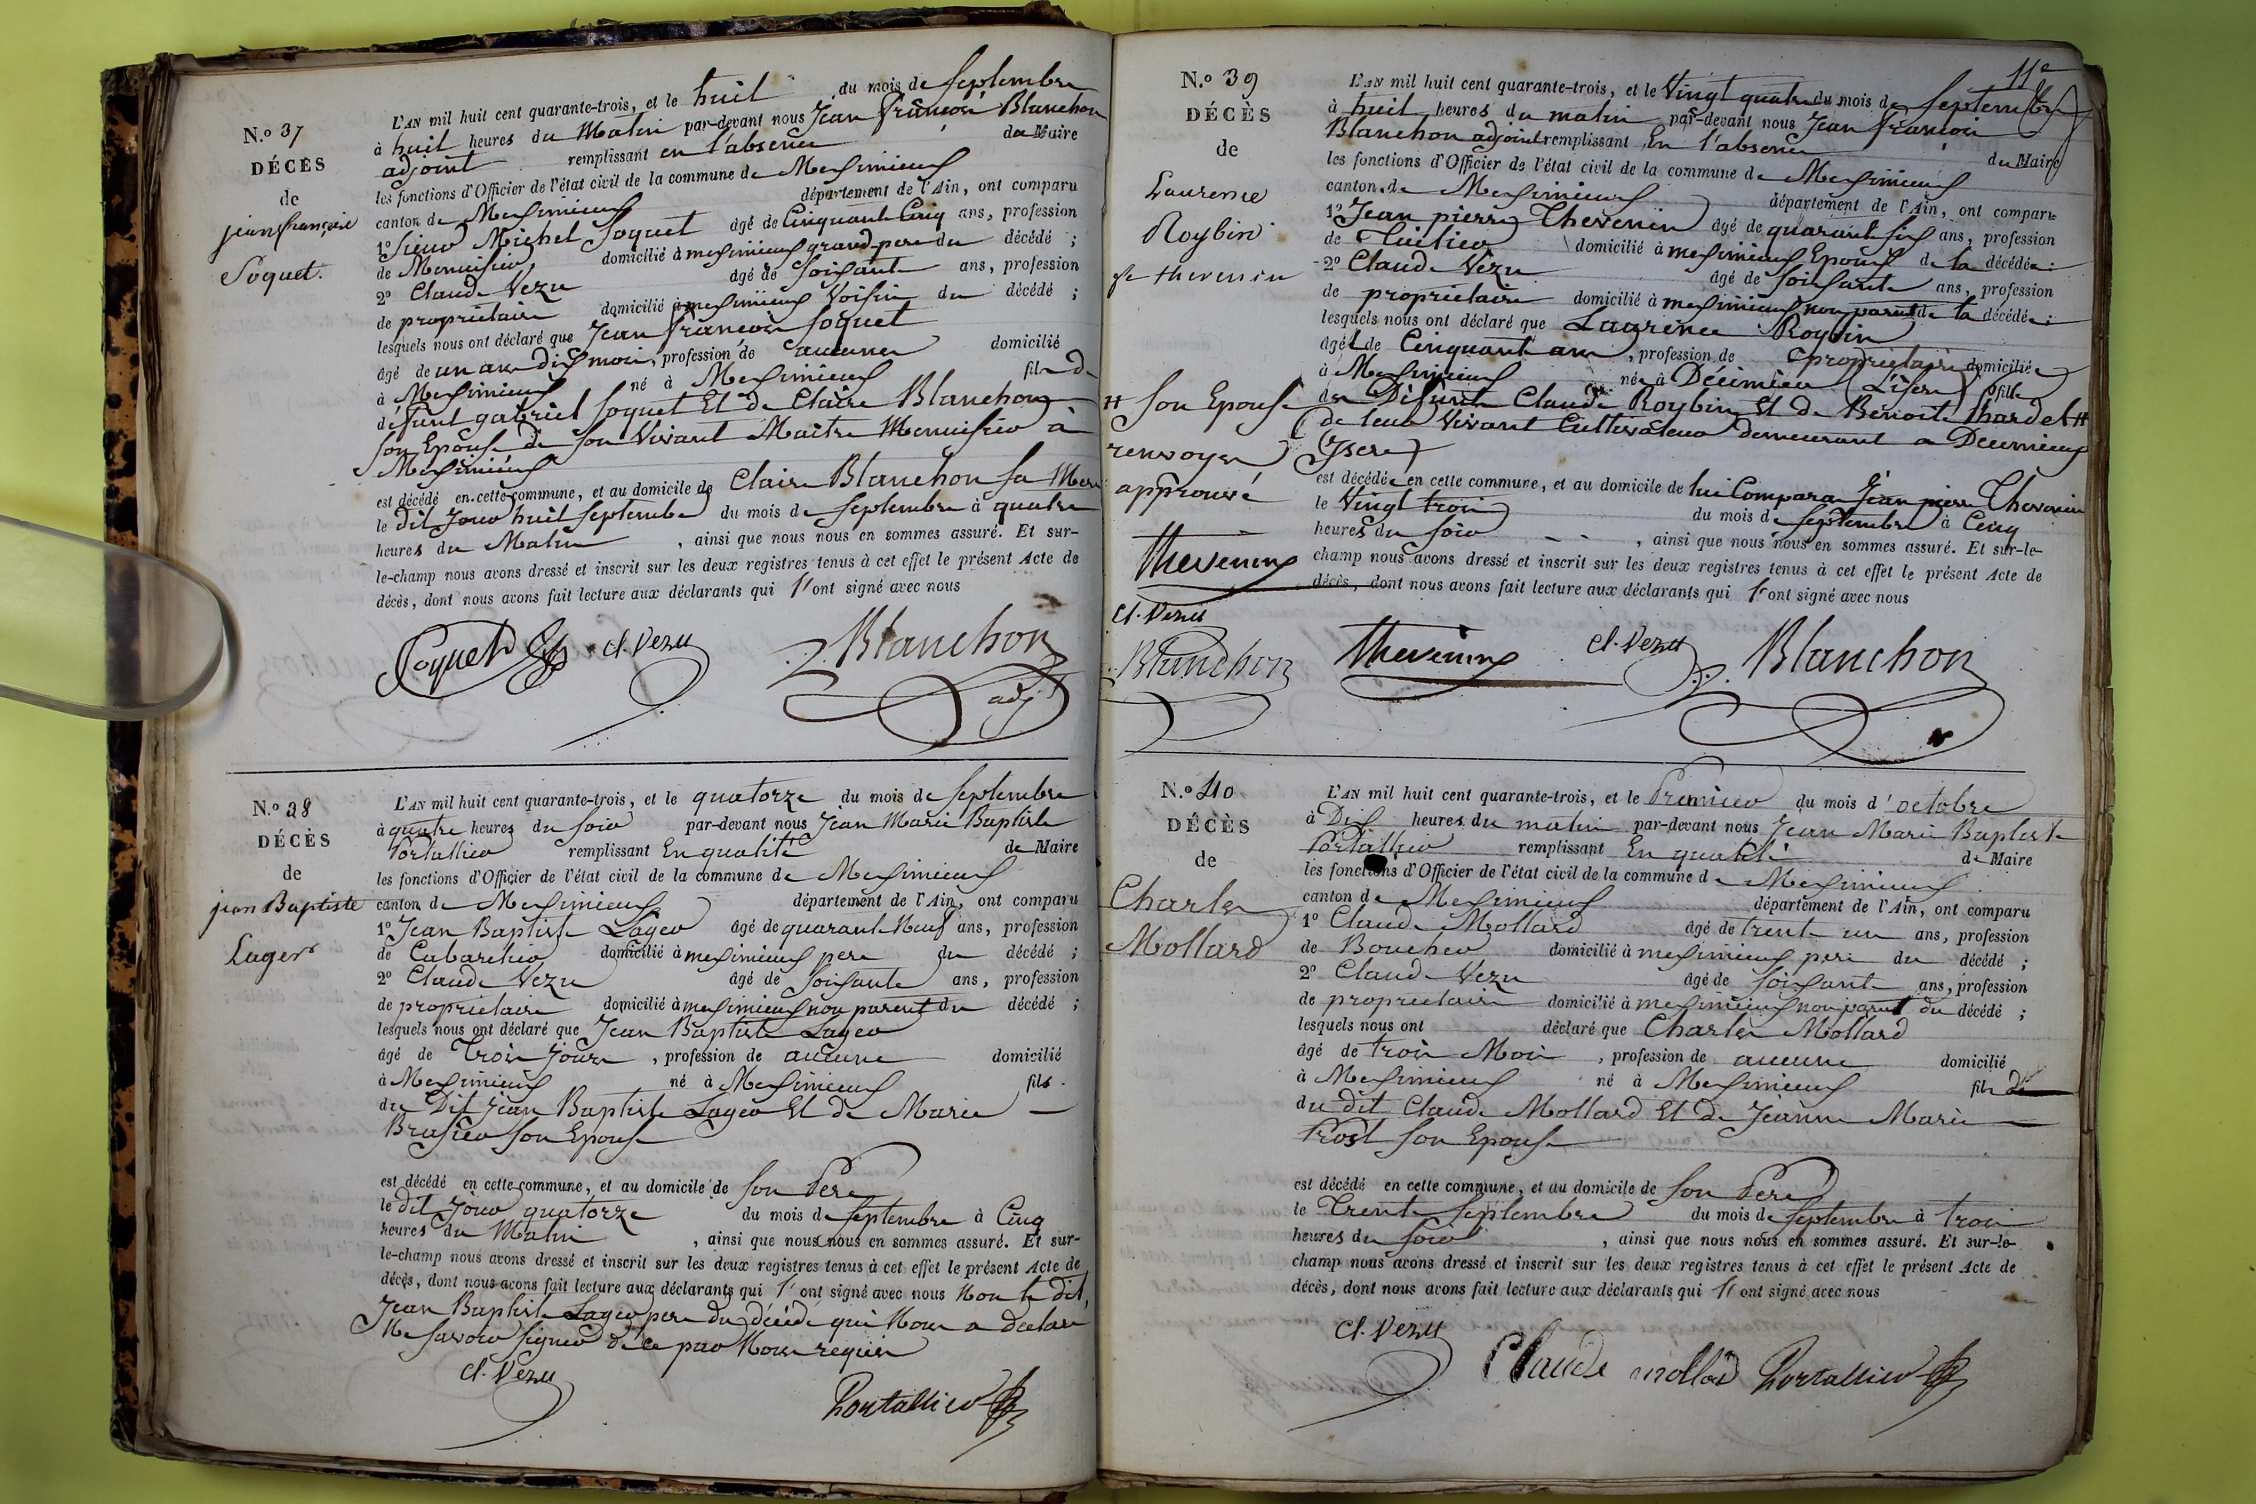 N.º 37
DÉCÈS
de
jean françois
Soquet.
L'AN mil huit cent quarante-trois, et le huit du mois de Septembre
à huit heures du Matin par-devant nous Jean François Blanchon
adjoint remplissant en l'absence du Maire
les fonctions d'Officier de l'état civil de la commune de Meximieux
canton de Meximieux département de l'Ain, ont comparu
1º Sieur Michel Soquet âgé de Cinquante Cinq ans, profession
de Menuisier domicilié à meximieux grand-pere du décédé ;
2º Claude Vezu âgé de Soixante ans, profession
de propriétaire domicilié à meximieux Voisin du décédé ;
lesquels nous ont déclaré que Jean François Soquet
âgé de un an dix mois, profession de aucune domicilié
à Meximieux né à Meximieux fils de
défunt gabriel Soquet Et de Claire Blanchon
son Epouse de son Vivant Maitre Menuisier à
Meximieux
est décédé en cette commune, et au domicile de Claire Blanchon sa Mere
le dit Jour huit septembre du mois de Septembre à quatre
heures du Matin , ainsi que nous nous en sommes assuré. Et sur-
le-champ nous avons dressé et inscrit sur les deux registres tenus à cet effet le présent Acte de
décès, dont nous avons fait lecture aux déclarants qui l'ont signé avec nous
Soquet cl. Vezu Blanchon
adj.
N.º 38
DÉCÈS
de
jean Baptiste
Lager
L'AN mil huit cent quarante-trois, et le quatorze du mois de Septembre
à quatre heures du soir par-devant nous Jean Marie Baptiste
Portallier remplissant En qualité de Maire
les fonctions d'Officier de l'état civil de la commune de Meximieux
canton de Meximieux département de l'Ain, ont comparu
1º Jean Baptiste Lager âgé de quarante Neuf ans, profession
de Cabaretier domicilié à meximieux pere du décédé ;
2º Claude Vezu âgé de Soixante ans, profession
de propriétaire domicilié à meximieux non parent du décédé ;
lesquels nous ont déclaré que Jean Baptiste Lager
âgé de Trois Jours , profession de aucune domicilié
à Meximieux né à Meximieux fils
du Dit Jean Baptiste Lager Et de Marie
Brasier son Epouse
est décédé en cette commune, et au domicile de Son Pere
le dit Jour quatorze du mois de Septembre à Cinq
heures du Matin , ainsi que nous nous en sommes assuré. Et sur-
le-champ nous avons dressé et inscrit sur les deux registres tenus à cet effet le présent Acte de
décès, dont nous avons fait lecture aux déclarants qui l'ont signé avec nous Non le dit
Jean Baptiste Lager pere du décédé qui Nous a declaré
Ne savoir signer de ce par Nous requis
cl. Vezu
Portallier
11e
N.º 39
DÉCÈS
de
Laurence
Roybin
fe thevenin
L'AN mil huit cent quarante-trois, et le Vingt quatre du mois de Septembre
à huit heures du matin par-devant nous Jean François
Blanchon adjoint remplissant En l'absence du Maire
les fonctions d'Officier de l'état civil de la commune de Meximieux
canton de Meximieux département de l'Ain, ont comparu
1º Jean pierre Thevenin âgé de quarante six ans, profession
de Tuilier domicilié à meximieux Epoux de la décédée ;
2º Claude Vezu âgé de Soixante ans, profession
de propriétaire domicilié à meximieux non parent de la décédée ;
lesquels nous ont déclaré que Laurence Roybin
âgée de Cinquante ans , profession de propriétaire domiciliée
à Meximieux née à Décimieu (Lisere) fille
de Défunts Claude Roybin Et de Benoite Chardet #
de leur Vivant Cultivateur demeurant a Decimieux
(Ysere)
# Son Epouse
renvoyer
approuvé
Thevenin
cl. Vezu
Blanchon
est décédée en cette commune, et au domicile de lui Comparan Jean pierre Thevenin
le Vingt trois du mois de Septembre à Cinq
heures du soir , ainsi que nous nous en sommes assuré. Et sur-le-
champ nous avons dressé et inscrit sur les deux registres tenus à cet effet le présent Acte de
décès, dont nous avons fait lecture aux déclarants qui l'ont signé avec nous
Thevenin cl. Vezu Blanchon
N.º 40
DÉCÈS
de
Charles
Mollard
L'AN mil huit cent quarante-trois, et le Premier du mois d'octobre
à Dix heures du matin par-devant nous Jean Marie Baptiste
Portallier remplissant En qualité de Maire
les fonctions d'Officier de l'état civil de la commune de Meximieux
canton de Meximieux département de l'Ain, ont comparu
1º Claude Mollard âgé de trente un ans, profession
de Boucher domicilié à meximieux pere du décédé ;
2º Claude Vezu âgé de soixante ans, profession
de propriétaire domicilié à meximieux non parent du décédé ;
lesquels nous ont déclaré que Charles Mollard
âgé de trois Mois , profession de aucune domicilié
à Meximieux né à Meximieux fils de
du dit Claude Mollard Et de Jeanne Marie
Prost son Epouse
est décédé en cette commune, et au domicile de Son Pere
le Trente Septembre du mois de Septembre à trois
heures du soir , ainsi que nous nous en sommes assuré. Et sur-le-
champ nous avons dressé et inscrit sur les deux registres tenus à cet effet le présent Acte de
décès, dont nous avons fait lecture aux déclarants qui l'ont signé avec nous
cl. Vezu
Claude mollard Portallier